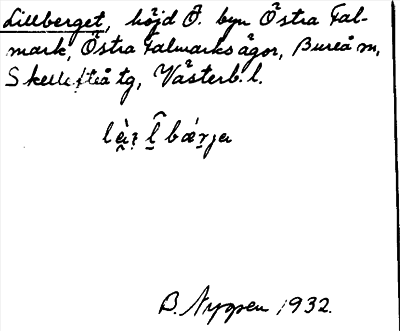 Lillberget, höjd Ö. byn Östra Fal-
mark, Östra Falmarks ägor, Bureå sn,
Skellefteå tg, Västerb. l.
B. Nygren 1932.